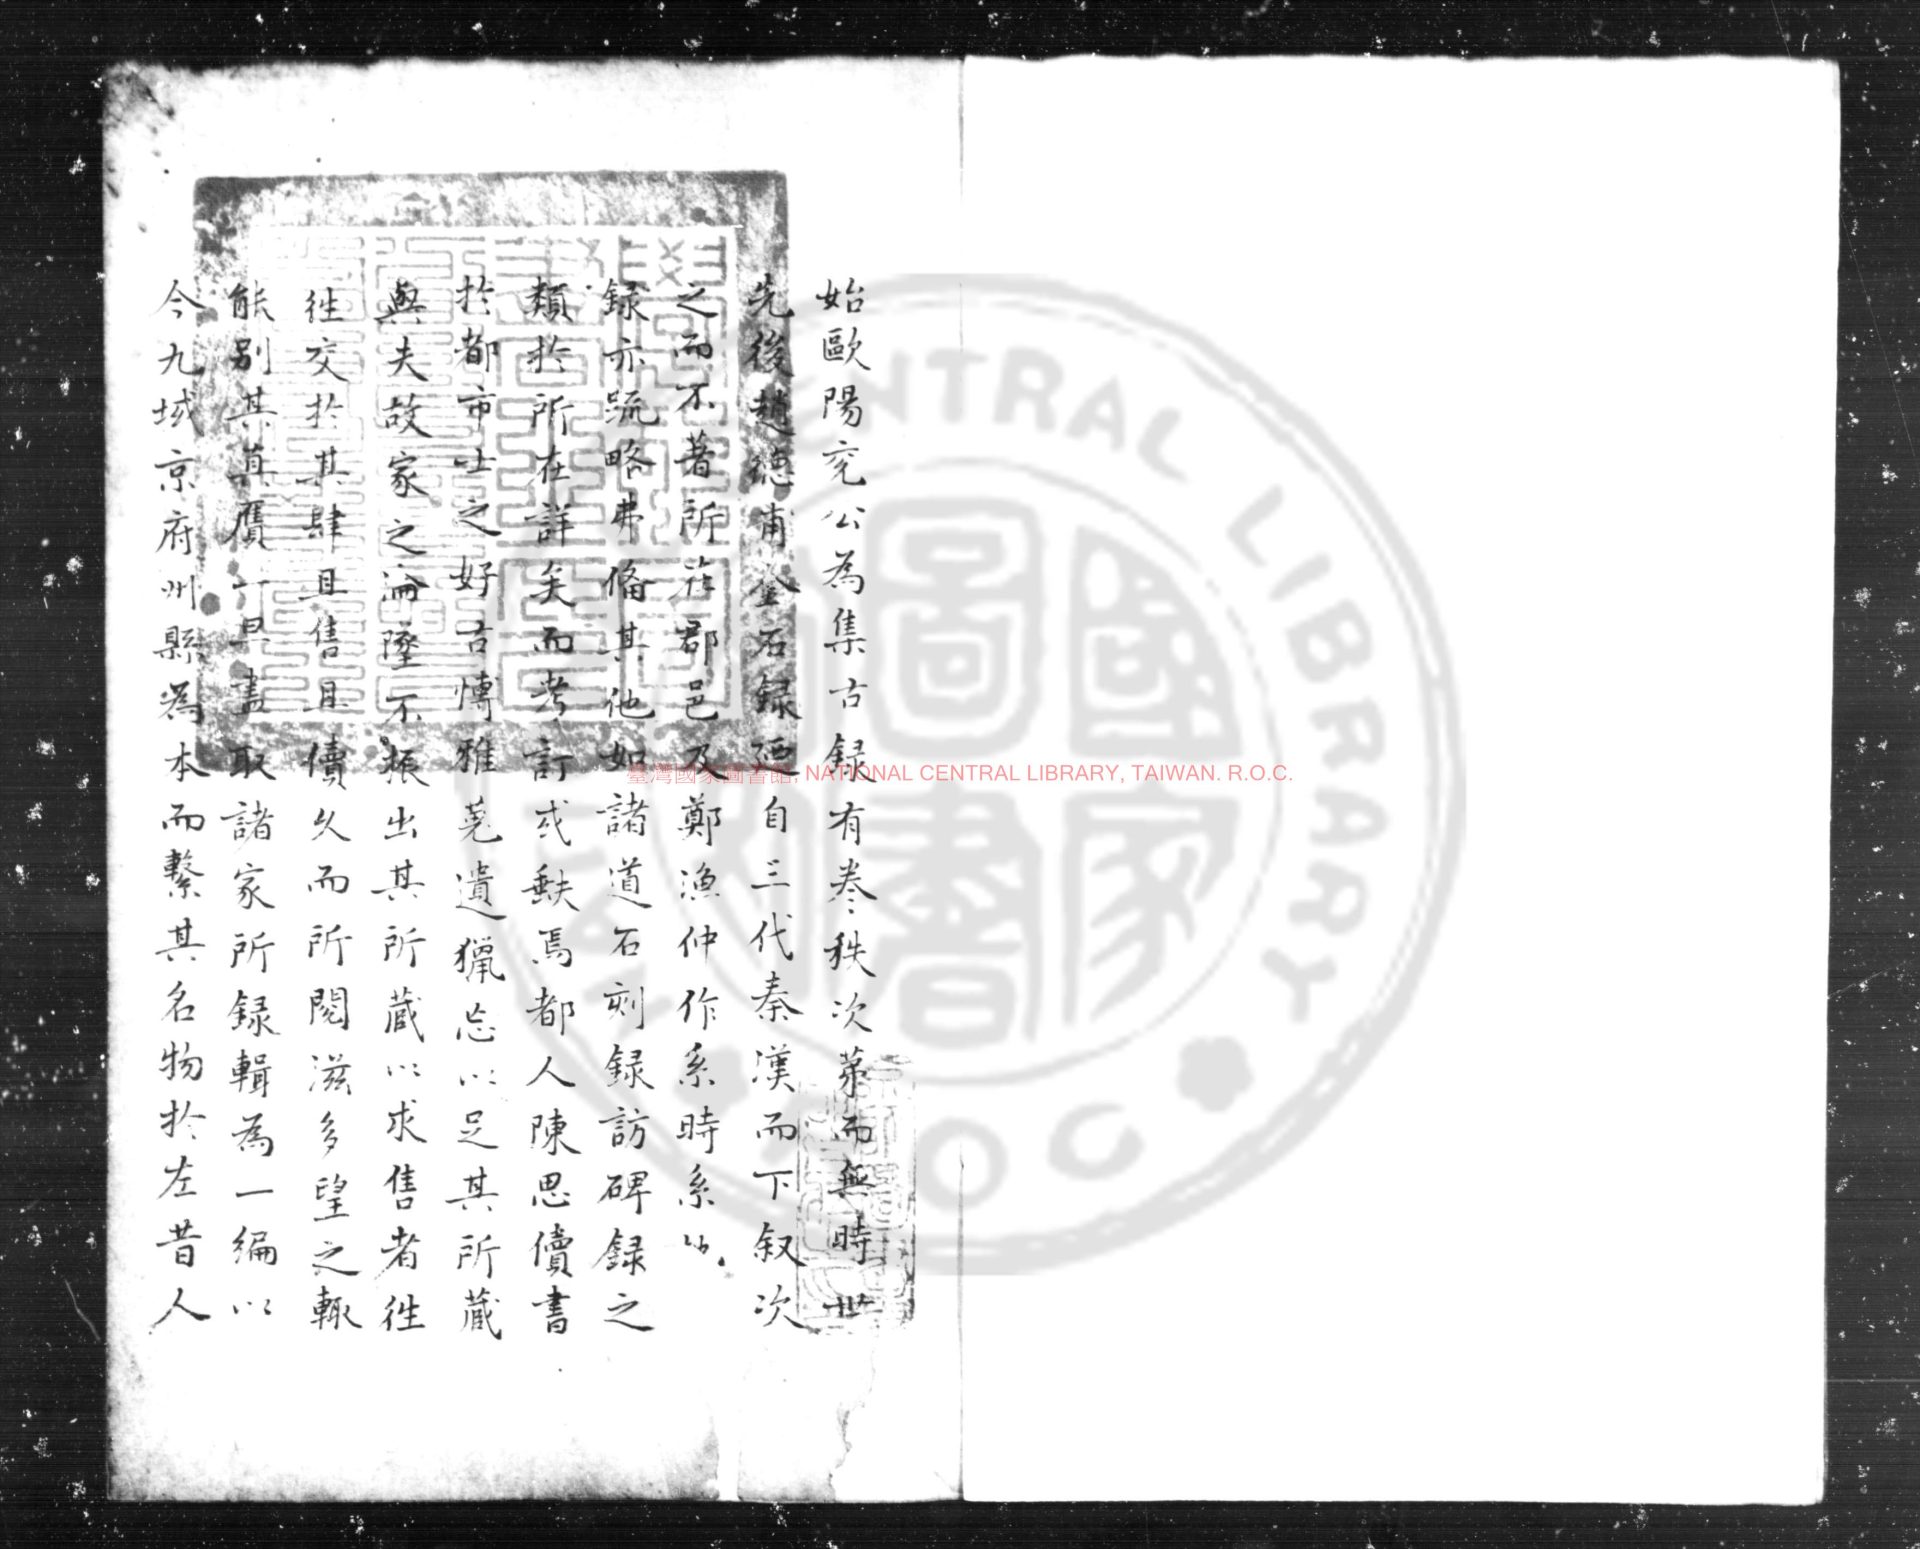 始歐陽兖公為集古録有卷秩次苐而無時世
先後趙德甫金石録迺自三代秦漢而下叙次
之而不著所在郡邑及鄭漁仲作系時系
録亦䟽略弗俻其他如諸道石刻録訪碑録之
類扵所在詳矣而考訂或缺焉都人陳思儥書
扵都市士之好古愽雅蒐遺獵忘以足其所蔵
與夫故家之淪墜不振出其所蔵以求售者徃
徃交扵其肆且售且儥久而所閲滋多望之輙
能别其真贋一旦盡取諸家所録輯為一編以
今九域京府州縣為本而繫其名物扵左昔人
臺灣國家圖書館, NATIONAL CENTRAL LIBRARY, TAIWAN. R.O.C.
國家圖書
CENTRAL LIBRARY
R.O.C.